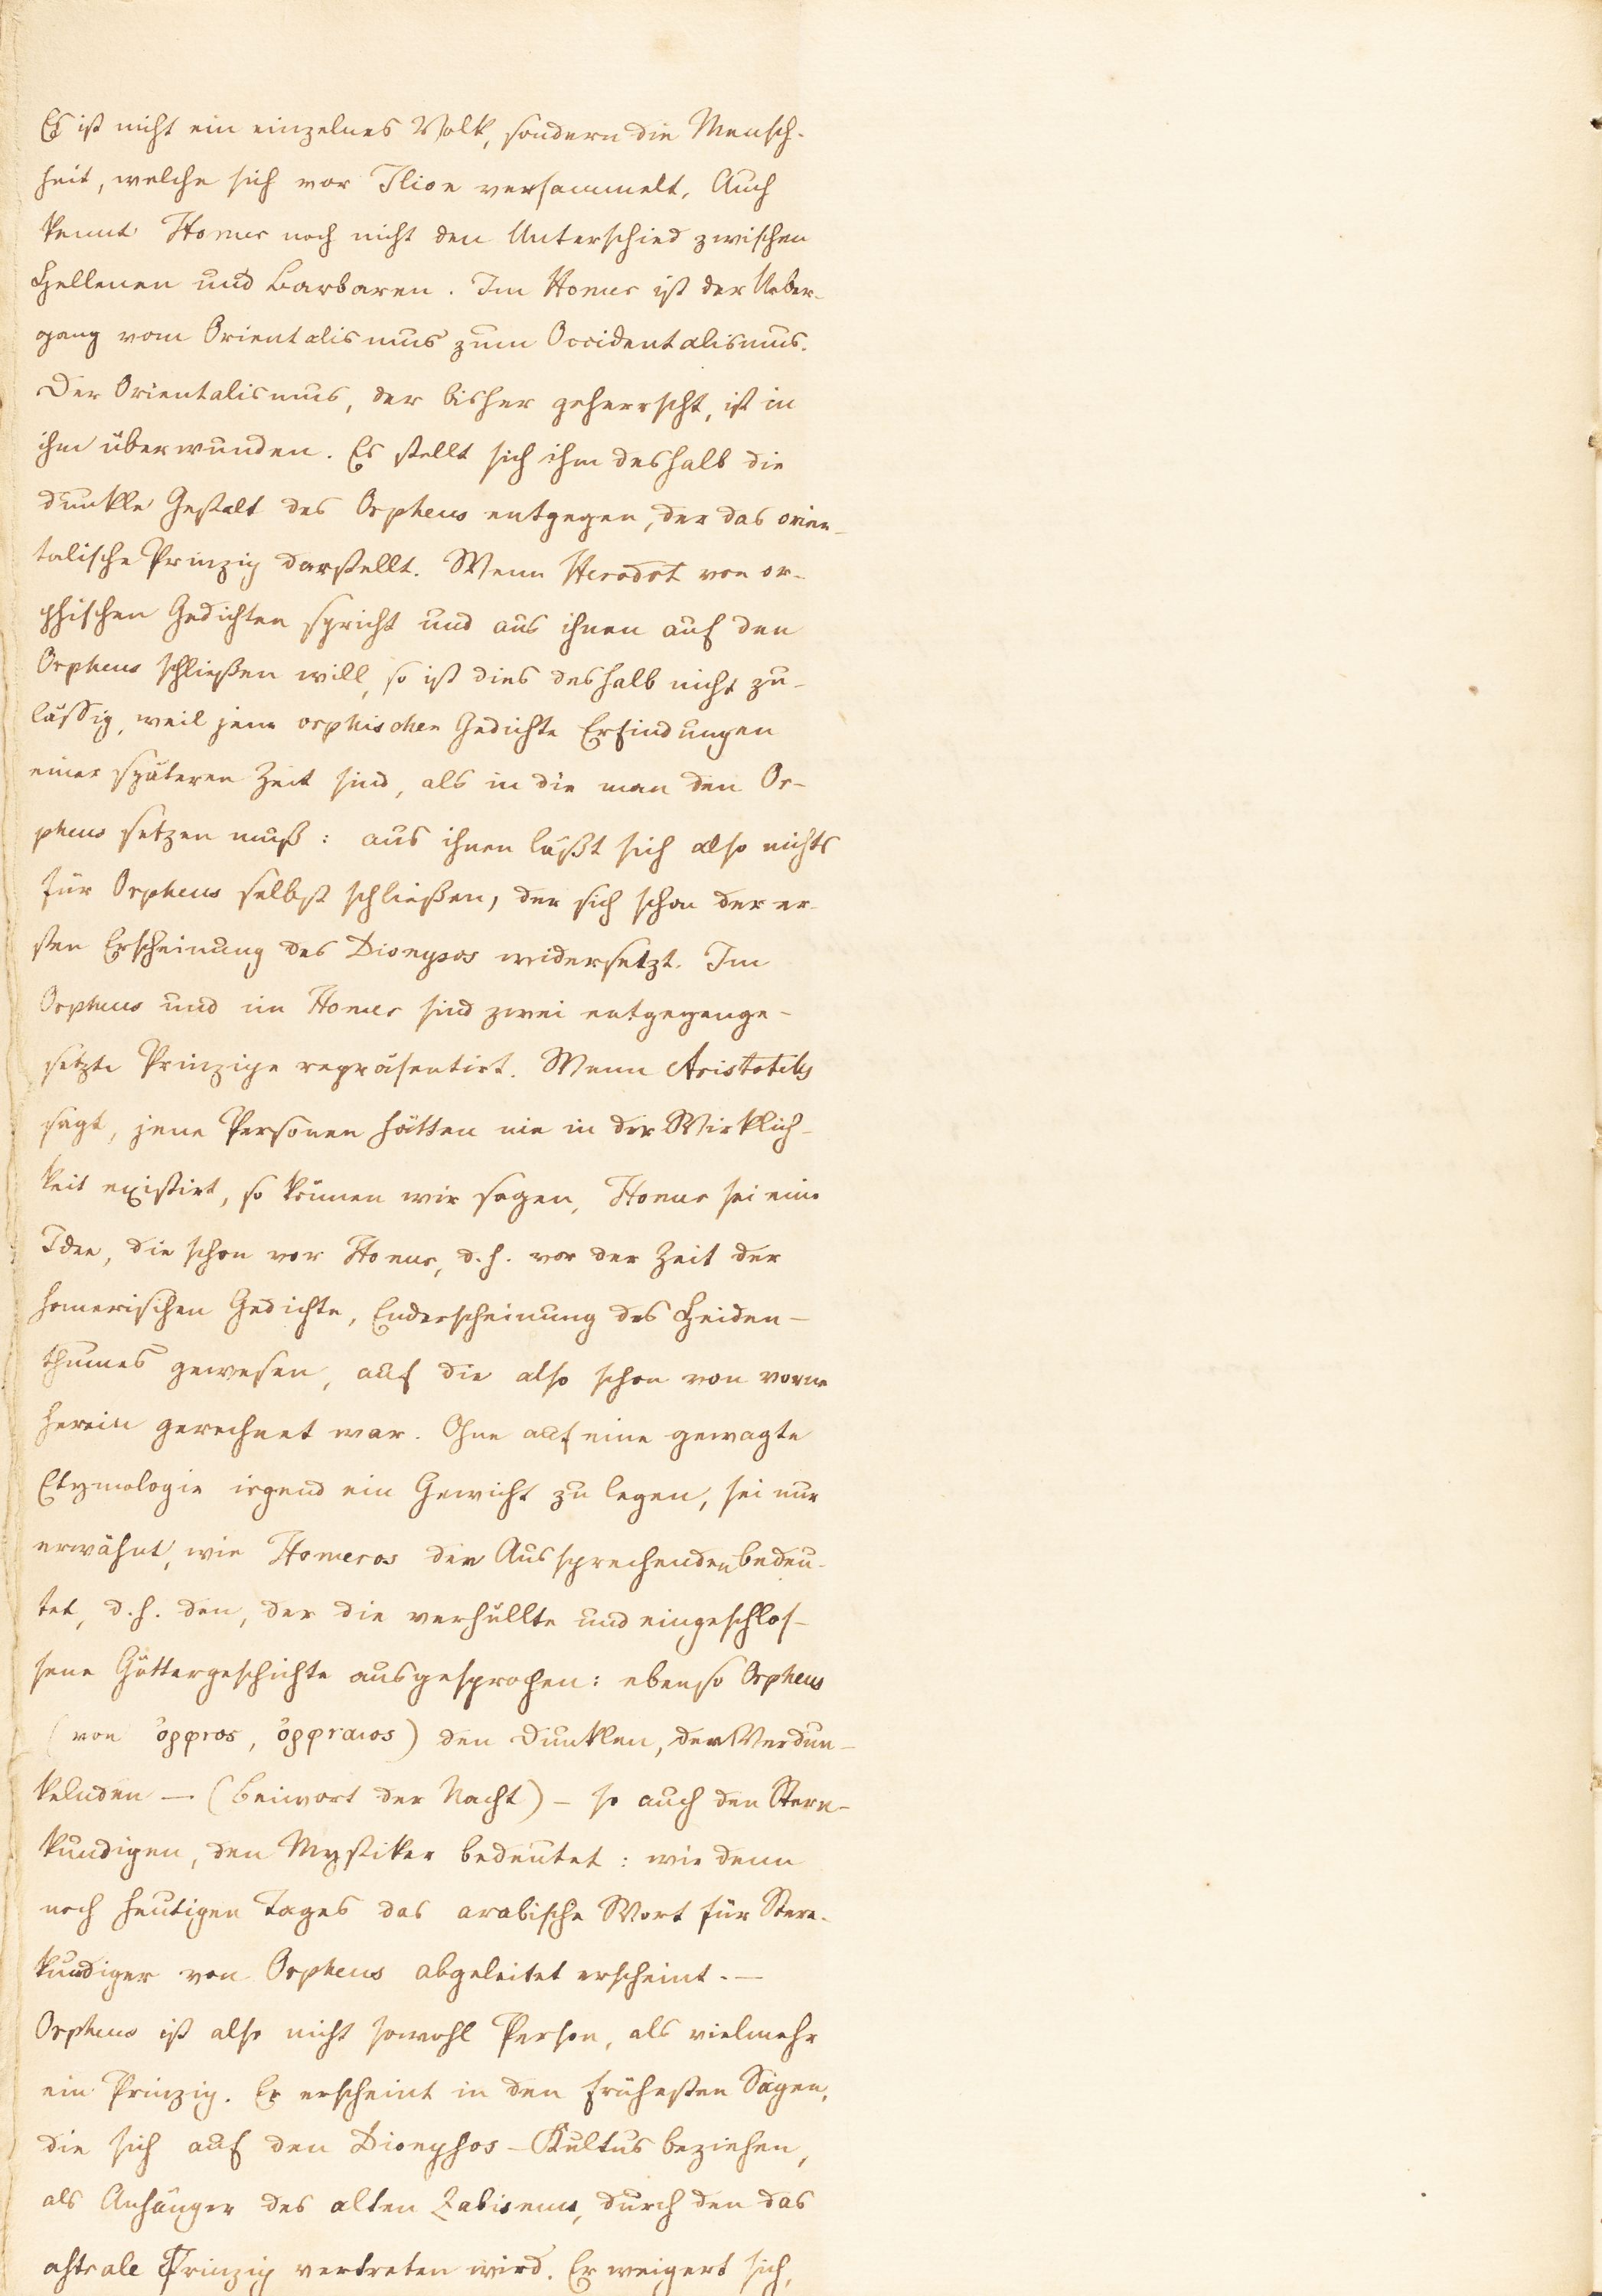 Es ist nicht ein einzelnes Volk, sondern die Mensch-
heit, welche sich vor Ilion versammelt. Auch
kennt Homer noch nicht den Unterschied zwischen
Hellenen und Barbaren. Im Homer ist der Ueber-
gang vom Orientalismus zum Occidentalismus.
Der Orientalismus, der bisher geherrscht, ist in
ihm überwunden. Es stellt sich ihm deshalb die
dunkle Gestalt des Orpheus entgegen, der das orien-
talische Prinzip darstellt. Wenn Herodot von or-
phischen Gedichten spricht und aus ihnen auf den
Orpheus schließen will, so ist dies deshalb nicht zu-
lässig, weil jene orphischen Gedichte Erfindungen
einer späteren Zeit sind, als in die man den Or-
pheus setzen muß: aus ihnen läßt sich also nichts
für Orpheus selbst schließen, der sich schon der er-
sten Erscheinung des Dionysos widersetzt. Im
Orpheus und im Homer sind zwei entgegenge-
setzte Prinzipe repräsentirt. Wenn Aristoteles
sagt, jene Personen hätten nie in der Wirklich-
keit existirt, so können wir sagen, Homer sei eine
Idee, die schon vor Homer, d. h. vor der Zeit der
homerischen Gedichte, Enderscheinung des Heiden-
thumes gewesen, auf die also schon von vorne
herein gerechnet war. Ohne auf eine gewagte
Etymologie irgend ein Gewicht zu legen, sei nur
erwähnt, wie Homeros den Aussprechenden bedeu-
tet, d. h. den, der die verhüllte und eingeschlos-
sene Göttergeschichte ausgesprochen: ebenso Orpheus
(von ὄρφνος, ὄρφναιος) den Dunklen, den Verdun-
kelnden — (Beiwort der Nacht) — so auch den Stern-
kundigen, den Mystiker bedeutet: wie denn
noch heutigen Tages das arabische Wort für Stern-
kundiger von Orpheus abgeleitet erscheint. —
Orpheus ist also nicht sowohl Person, als vielmehr
ein Prinzip. Er erscheint in den frühesten Sagen,
die sich auf den Dionysos-Kultus beziehen,
als Anhänger des alten Zabismus, durch den das
astrale Prinzip vertreten wird. Er weigert sich,